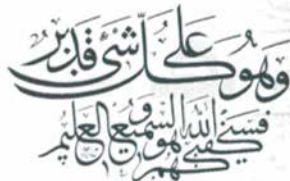 وَهُوَ عَلَىٰ كُلِّ شَيْءٍ قَدِيرٌ
فَسَيَكْفِيكَهُمُ اللهُ وَهُوَ السَّمِيعُ العَلِيمُ